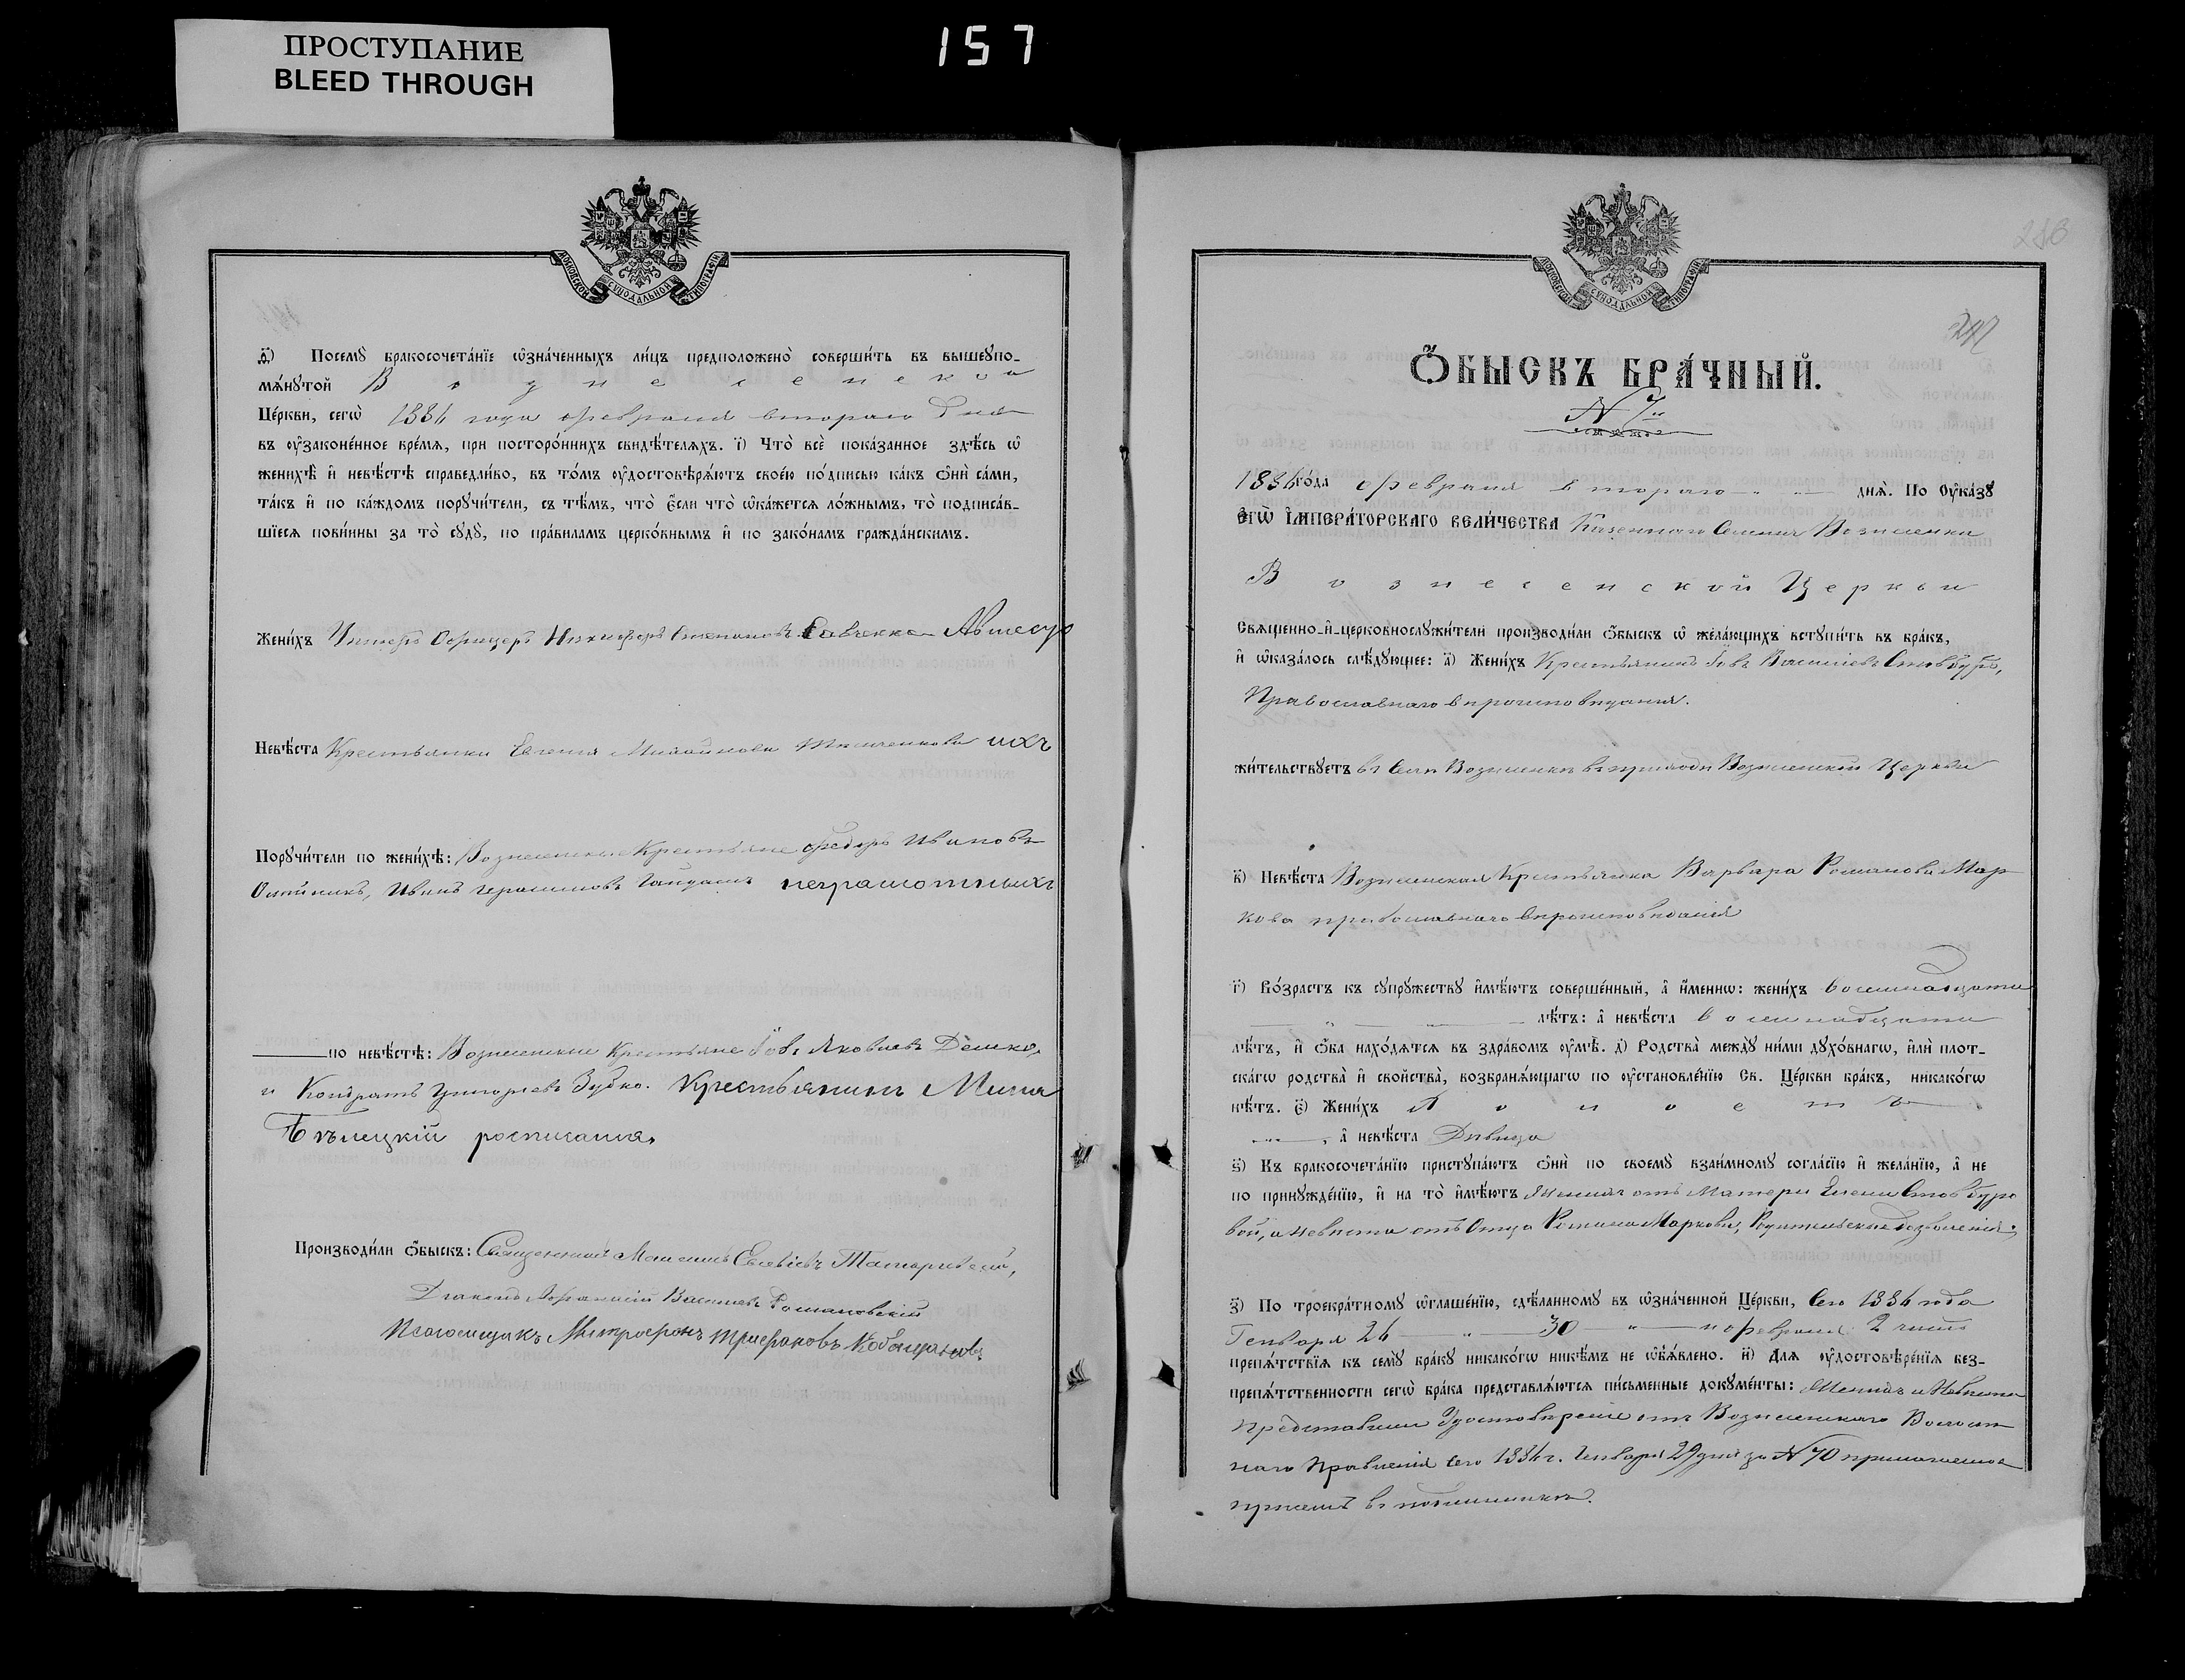 ПРОСТУПАНИЕ
BLEED THROUGH
157
МОСКОВСКОЙ СУНОДАЛЬНОЙ ТИПОГРАФІИ
Посемꙋ̀ бракосочета́нїе ѡ҆зна́ченныхъ ли́цъ предположено̀ соверши́ть въ вышеꙋпо-
мѧ́нꙋтой Вознесенской
Це́ркви, сегѡ̀ 1884 года февраля втораго дня
въ ᲂу҆законе́нное вре́мѧ, при посторо́ннихъ свидѣ́телѧхъ. і҃) Что̀ всѐ пока́занное здѣ́сь ѡ҆
женихѣ̀ и҆ невѣ́стѣ справедли́во, въ то́мъ ᲂу҆достовѣрѧ́ютъ свое́ю по́дписью ка́къ ѻ҆нѝ са́ми,
та́къ и҆ по ка́ждомъ порꙋчи́тели, съ тѣ́мъ, что̀ є҆́сли что̀ ѡ҆ка́жетсѧ ло́жнымъ, то̀ подписа́в-
шїесѧ пови́нны за то̀ сꙋдꙋ̀, по пра́виламъ церко́внымъ и҆ по зако́намъ гражда́нскимъ.
Жени́хъ Унтеръ Офицеръ Никифоръ Степановъ Савченко
Невѣ́ста Крестьянка Евгенія ихъ
Порꙋчи́тели по жени́хѣ: Вознесенскіе Крестьяне Федоръ Ивановъ
Иванъ неграмотныхъ
по невѣ́стѣ: Вознесенскіе Крестьяне Іовъ Яковлевъ
и Кондратъ Григорьевъ Зубко. Крестьянинъ Мина
Бѣлецкій росписался
Производи́ли ѻ҆́быскъ: Священникъ Евсевіевъ
Діаконъ Афанасій Васильевъ Романовскій
Псаломщикъ Митрофонъ Трифановъ
МОСКОВСКОЙ СУНОДАЛЬНОЙ ТИПОГРАФІИ
Ѻ҆́быскъ бра́чный.
N 7й
1884 го́да февраля втораго днѧ̀. По Оу҆ка́зꙋ
Є҆гѡ̀ І҆мпера́торскаго вели́чества Казеннаго Селенія Вознесенки
Вознесенской Церкви
Свѧще́нно-и҆-церковнослꙋжи́тели производи́ли ѻ҆́быскъ ѡ҆ жела́ющихъ встꙋпи́ть въ бра́къ,
и҆ ѡ҆каза́лось слѣ́дꙋющее: а҃) Жени́хъ Крестьянинъ Іовъ Васильевъ Стовбуръ,
Православнаго вѣроисповѣданія.
жи́тельствꙋетъ въ Селѣ Вознесенкѣ въ приходѣ Вознесенской Церкви
в҃) Невѣ́ста Вознесенская Крестьянка Варвара Романова Мар
кова православнаго вѣроисповѣданія
г҃) Во́зрастъ къ сꙋпрꙋ́жествꙋ и҆мѣ́ютъ соверше́нный, а҆ и҆́меннѡ: жени́хъ восемнадцати
лѣ́тъ: а҆ невѣ́ста восемнадцати
лѣ́тъ, и҆ ѻ҆́ба нахо́дѧтсѧ въ здра́вомъ ᲂу҆мѣ̀. д҃) Родства̀ междꙋ̀ ни́ми дꙋхо́внагѡ, и҆лѝ пло́т-
скагѡ родства̀ и҆ сво́йства, возбранѧ́ющагѡ по ᲂу҆становле́нїю Св. Це́ркви бра́къ, никако́гѡ
нѣ́тъ. є҃) Жени́хъ Холостъ
, а҆ невѣ́ста Дѣвица
ѕ҃) Къ бракосочета́нїю пристꙋпа́ютъ ѻ҆нѝ по своемꙋ̀ взаи́мномꙋ согла́сїю и҆ жела́нїю, а҆ не
по принꙋжде́нїю, и҆ на то̀ и҆мѣ́ютъ Женихъ отъ Матери Елены Стовбуро
вой, а Невѣста отъ Отца Романа Маркова, Родительскіе дозволенія.
з҃) По троекра́тномꙋ ѡ҆глаше́нїю, сдѣ́ланномꙋ въ ѡ҆зна́ченной Це́ркви, сего 1884 года
Генваря 26 " 30 " и февраля 2 числъ
препѧ́тствїѧ къ семꙋ̀ бра́кꙋ никако́гѡ никѣ́мъ не ѡ҆б̾ѧ́влено. и҃) Длѧ ᲂу҆достовѣре́нїѧ без-
препѧ́тственности сегѡ̀ бра́ка представлѧ́ютсѧ пи́сьменные докꙋме́нты: Женихъ и Невѣста
представили Удостовѣреніе отъ Вознесенскаго Волост
наго Правленія сего 1884 г. Генваря 29 дня за N 70 прилагаемое
при семъ въ подлинникѣ.